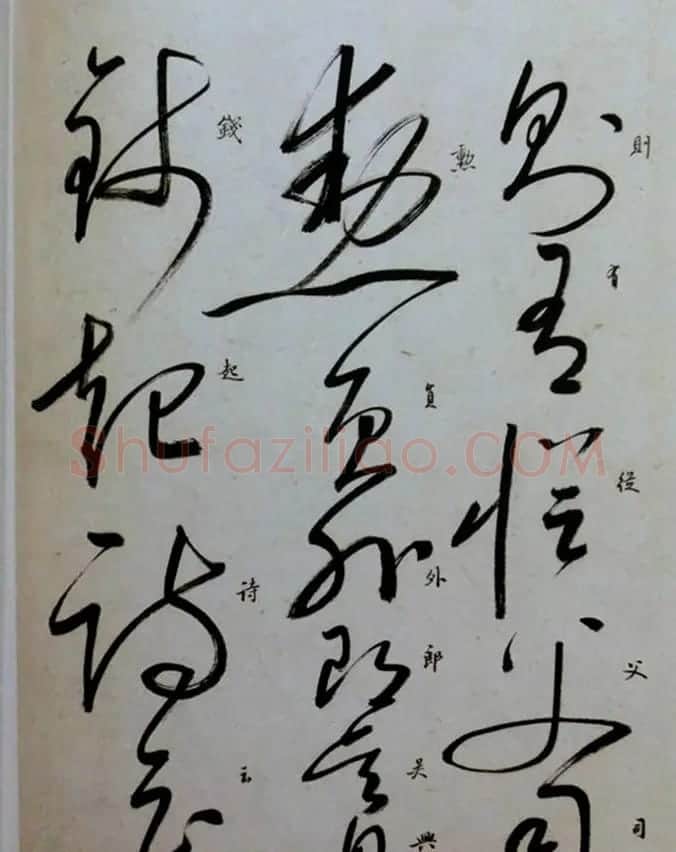 則有從父司
勲員外郎吴興
錢起詩云
Shufaziliao.COM